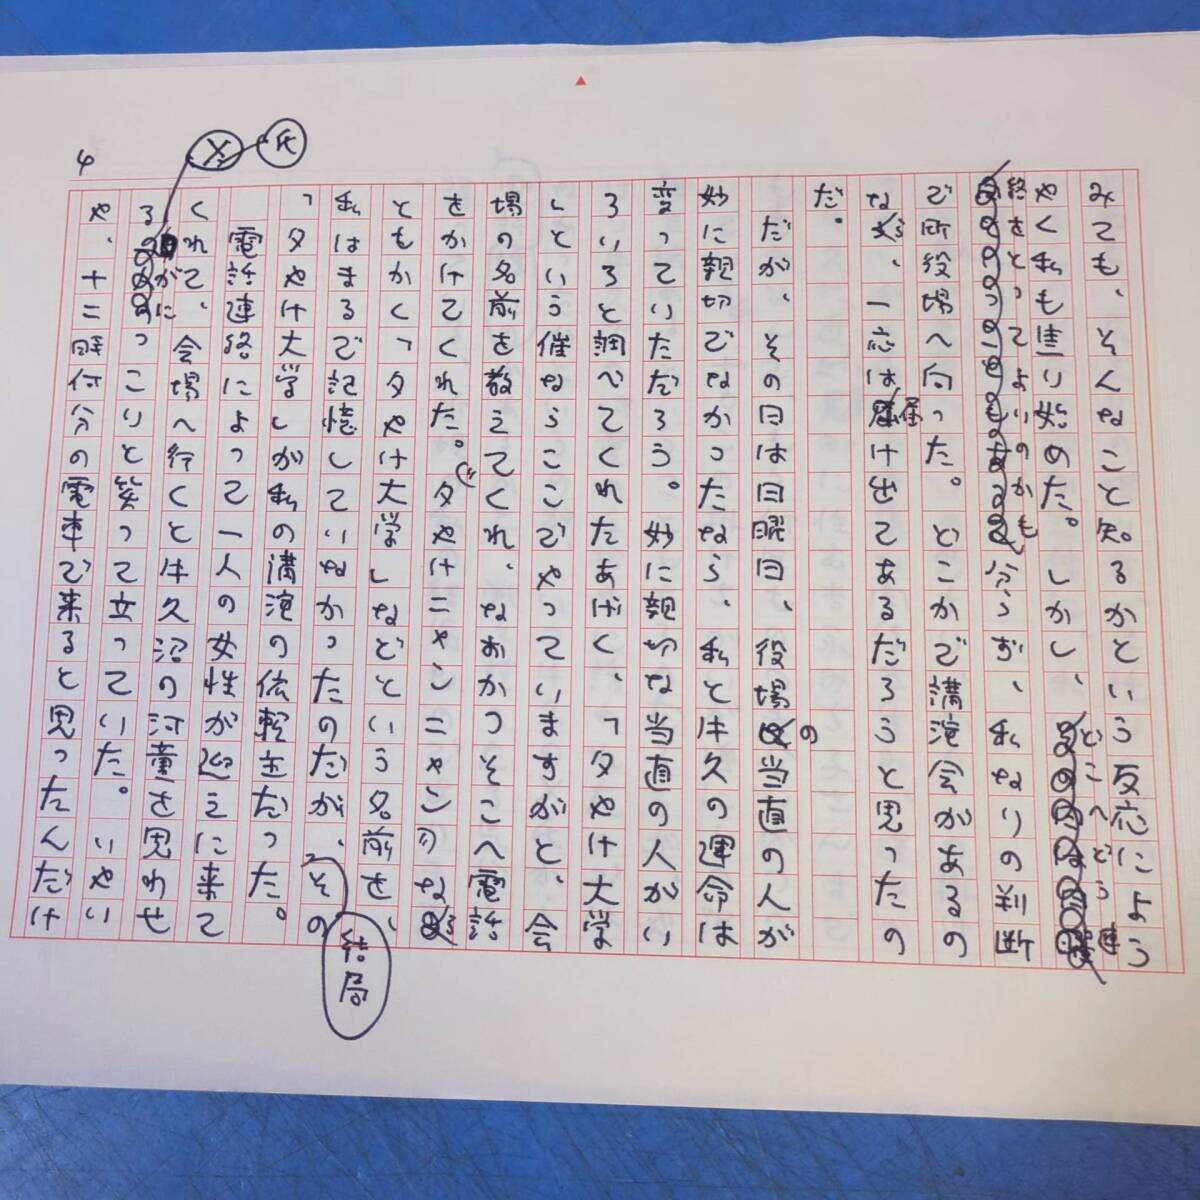 4
みても、そんなこと知るかという反応によう
やく私も焦り始めた。しかし、どこへどう連
終をとってよいのかも分らず、私なりの判断
で所役場へ向った。どこかで講演会があるの
なら、一応は届け出てあるだろうと思ったの
だ。
だが、その日は日曜日、役場の当直の人が
妙に親切でなかったなら、私と牛久の運命は
変っていただろう。妙に親切な当直の人がい
ろいろと調べてくれたあげく、「夕やけ大学
」という催ならここでやっていますがと、会
場の名前を教えてくれ、なおかつそこへ電話
をかけてくれた。夕やけニャンニャンなら
ともかく「夕やけ大学」などという名前を、
私はまるで記憶していなかったのだが、結局その
「夕やけ大学」が私の講演の依頼主だった。
電話連絡によって一人の女性が迎えに来て
くれて、会場へ行くと牛久沼の河童を思わせ
る
氏がにっこりと笑って立っていた。いやい
や、十二時何分の電車で来ると思ったんだけ